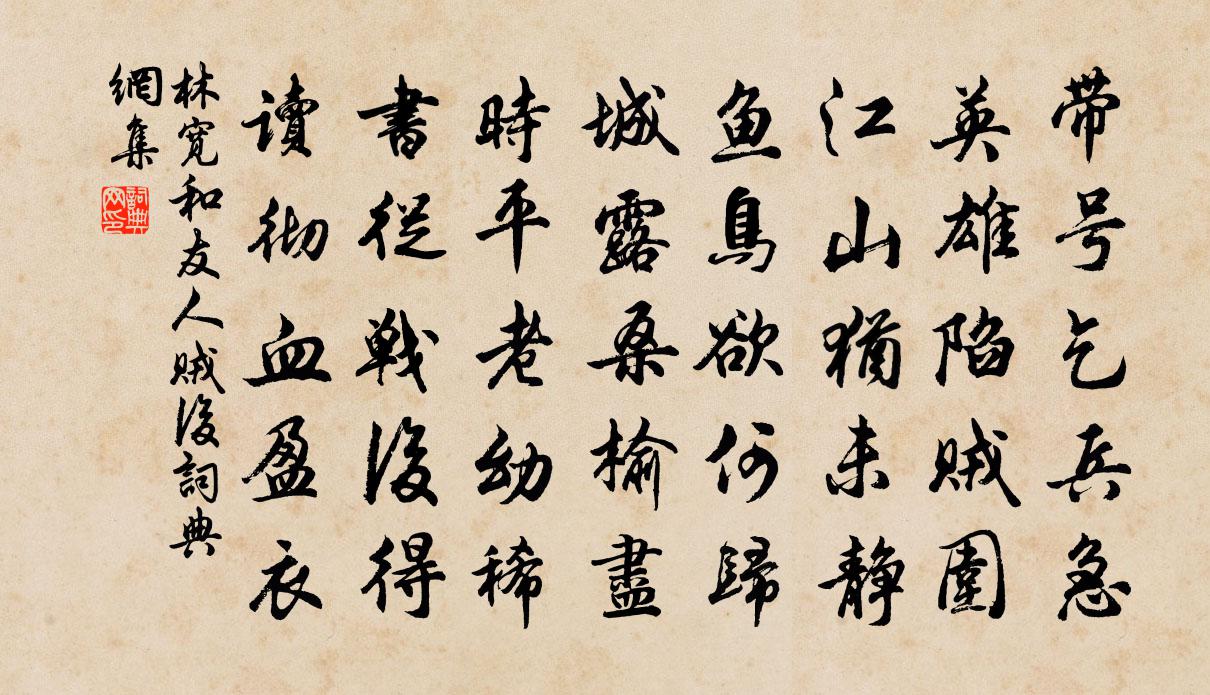 带号乞兵急
英雄陷贼圍
江山猶未静
鱼鳥欲何歸
城露桑榆盡
時平老幼稀
書從戰後得
讀彻血盈衣
林寬和友人贼後詞典
網集
詞典
网印